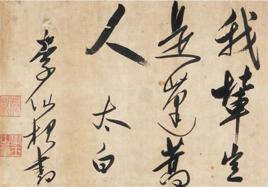 我輩豈
是蓬蒿
人 太白
李仙根書